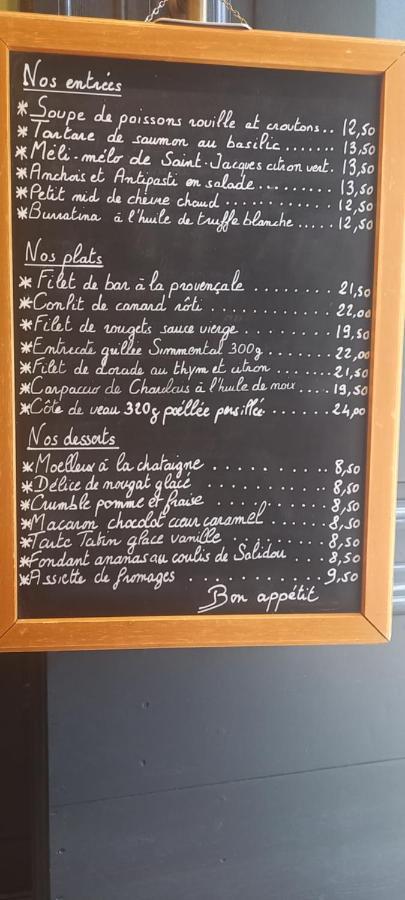 Nos entrées
* Soupe de poissons rouille et croutons.. 12,50
* Tartare de saumon au basilic....... 13,50
* Méli-mélo de Saint-Jacques citron vert. 13,50
* Anchois et Antipasti en salade......... 13,50
* Petit nid de chèvre chaud............ 12,50
* Burratina à l'huile de truffe blanche..... 12,50
Nos plats
* Filet de bar à la provençale......... 21,50
* Confit de canard rôti............. 22,00
* Filet de rougets sauce vierge......... 19,50
* Entrecote grillée Simmental 300g....... 22,00
* Filet de dorade au thym et citron....... 21,50
* Carpaccio de Charolais à l'huile de noix.... 19,50
* Côte de veau 320g poêllée persillée....... 24,00
Nos desserts
* Moelleux à la chataigne........... 8,50
* Délice de nougat glacé........... 8,50
* Crumble pomme et fraise......... 8,50
* Macaron chocolat cœur caramel...... 8,50
* Tarte Tatin glace vanille......... 8,50
* Fondant ananas au coulis de Salidou... 8,50
* Assiette de fromages............ 9,50
Bon appétit